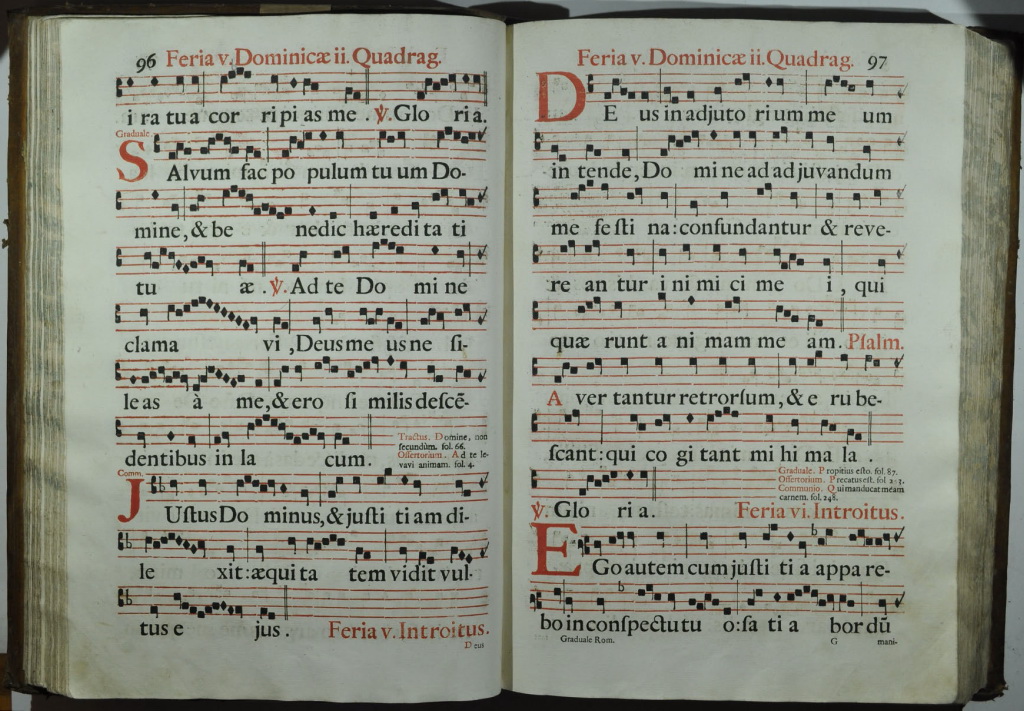 96 Feria v. Dominicæ ii. Quadrag.
i ra tu a cor ri pi as me . ℣. Glo ri a.
Graduale.
SAlvum fac po pulum tu um Do-
mine, & be nedic hæredi ta ti
tu æ . ℣. Ad te Do mi ne
clama vi , Deus me us ne ſi-
le as à me, & ero ſi milis deſcē-
dentibus in la cum.
Tractus. Domine, non
ſecundùm. fol. 66.
Offertorium. Ad te le-
vavi animam. fol. 4.
Comm.
JUſtus Do minus, & juſti ti am di-
le xit: æqui ta tem vidit vul-
tus e jus . Feria v. Introitus.
Deus
Feria v. Dominicæ ii. Quadrag. 97
DE us in adjuto ri um me um
in tende, Do mi ne ad ad ju vandum
me fe ſti na: confundantur & reve-
re an tur i ni mi ci me i , qui
quæ runt a ni mam me am. Pſalm.
A ver tantur retrorſum, & e ru be-
ſcant: qui co gi tant mi hi ma la .
Graduale. Propitius eſto. fol. 87.
Offertorium. Precatus eſt. fol
Communio. Qui manducat meam
carnem. fol. 248.
℣. Glo ri a. Feria vi. Introitus.
EGo autem cum juſti ti a appa re-
bo in conſpectu tu o: ſa ti a bor dũ
Graduale Rom. G mani-